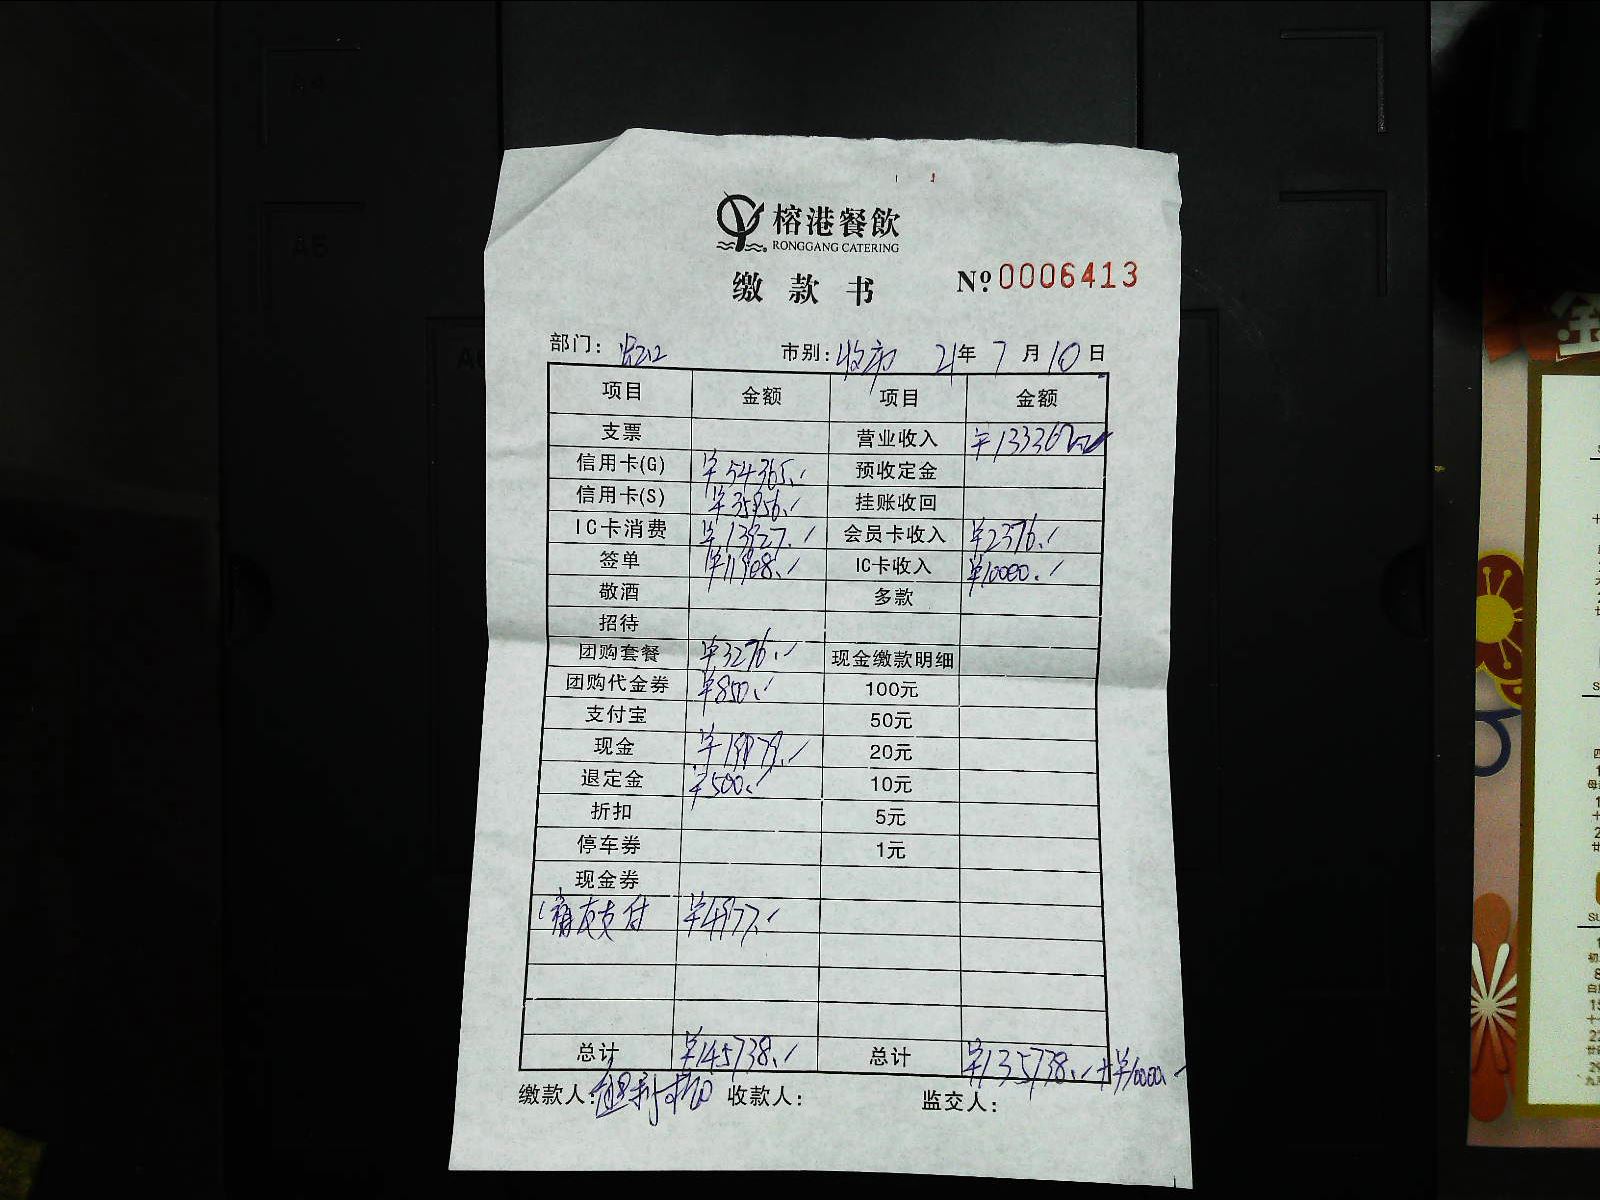 榕港餐飲
RONGGANG CATERING
缴款书 №0006413
部门： 市别：收市 21年7月10日
项目 金额 项目 金额
支票 营业收入
信用卡(G) ¥54365. 预收定金
信用卡(S) ¥35956. 挂账收回
IC卡消费 ¥13927. 会员卡收入 ¥2376.
签单 ¥11908. IC卡收入 ¥10000.
敬酒 多款
招待
团购套餐 ¥3276. 现金缴款明细
团购代金券 ¥850. 100元
支付宝 50元
现金 ¥19979. 20元
退定金 ¥500. 10元
折扣 5元
停车券 1元
现金券
支付 ¥4977.
总计 ¥145738. 总计 ¥135738. +¥10000.
缴款人： 收款人： 监交人：
A4
A5